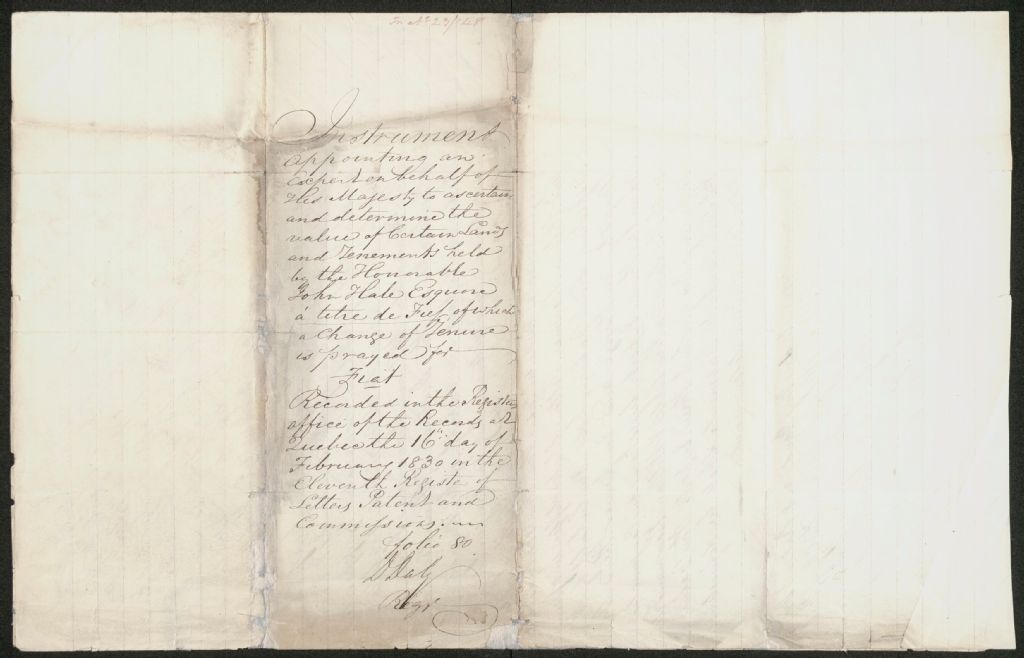 Instrument
appointing an
Expert on behalf of
His Majesty to ascertain
and determine the
value of Certain Lands
and Tenements held
by the Honorable
John Hale Esquire
à titre de Fief of which
a Change of Tenure
is prayed for
Fiat
Recorded in the Register
office of the Records at
Quebec the 16th day of
February 1830 in the
Eleventh Register of
Letters Patent and
Commissions.
folio 80
D Daly
Regr